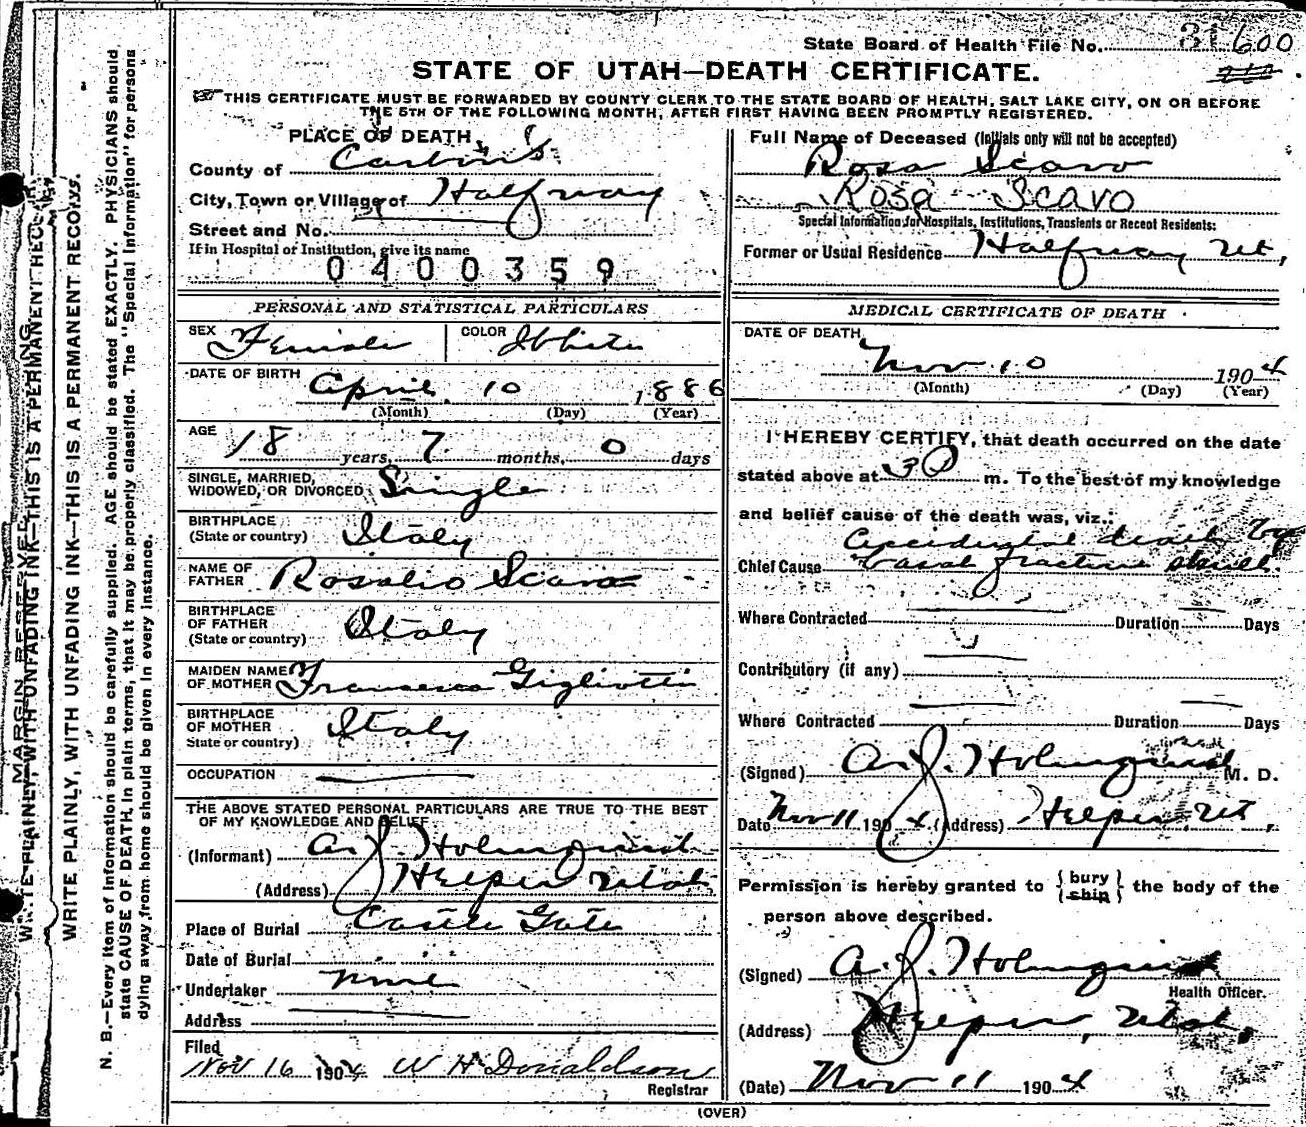 State Board of Health File No. 31600
STATE OF UTAH—DEATH CERTIFICATE.
THIS CERTIFICATE MUST BE FORWARDED BY COUNTY CLERK TO THE STATE BOARD OF HEALTH, SALT LAKE CITY, ON OR BEFORE
THE 5TH OF THE FOLLOWING MONTH, AFTER FIRST HAVING BEEN PROMPTLY REGISTERED.
PLACE OF DEATH
County of Carbon
City, Town or Village of Halfway
Street and No.
If in Hospital of Institution, give its name
0400359
PERSONAL AND STATISTICAL PARTICULARS
SEX Female COLOR White
DATE OF BIRTH April 10 1886
(Month) (Day) (Year)
AGE 18 years, 7 months, 0 days
SINGLE, MARRIED,
WIDOWED, OR DIVORCED Single
BIRTHPLACE
(State or country) Italy
NAME OF
FATHER Rosalio Scavo
BIRTHPLACE
OF FATHER
(State or country) Italy
MAIDEN NAME
OF MOTHER Francesca Gigliotti
BIRTHPLACE
OF MOTHER
State or country) Italy
OCCUPATION
THE ABOVE STATED PERSONAL PARTICULARS ARE TRUE TO THE BEST
OF MY KNOWLEDGE AND BELIEF
(Informant) A. J. Holmquist
(Address) Helper Utah
Place of Burial Castle Gate
Date of Burial
Undertaker none
Address
Filed
Nov 16 1904 W H Donaldson
Registrar
Full Name of Deceased (Initials only will not be accepted)
Rosa Scavo
Rosa Scavo
Special Information for Hospitals, Institutions, Transients or Recent Residents:
Former or Usual Residence Halfway Ut,
MEDICAL CERTIFICATE OF DEATH
DATE OF DEATH
Nov 10 1904
(Month) (Day) (Year)
I HEREBY CERTIFY, that death occurred on the date
stated above at 3 P m. To the best of my knowledge
and belief cause of the death was, viz.:
Accidental death by
Chief Cause basal fracture skull.
Where Contracted Duration Days
Contributory (if any)
Where Contracted Duration Days
(Signed) A. J. Holmquist M. D.
Date Nov 11 1904 (Address) Helper, Ut,
Permission is hereby granted to {bury
{ship} the body of the
person above described.
(Signed) A. J. Holmquist
Health Officer.
(Address) Helper, Utah,
(Date) Nov 11 1904
(OVER)
WRITE PLAINLY, WITH UNFADING INK—THIS IS A PERMANENT RECORD.
WRITE PLAINLY, WITH UNFADING INK—THIS IS A PERMANENT RECORD.
N. B.—Every item of information should be carefully supplied. AGE should be stated EXACTLY. PHYSICIANS should
state CAUSE OF DEATH in plain terms, that it may be properly classified. The "Special Information" for persons
dying away from home should be given in every instance.